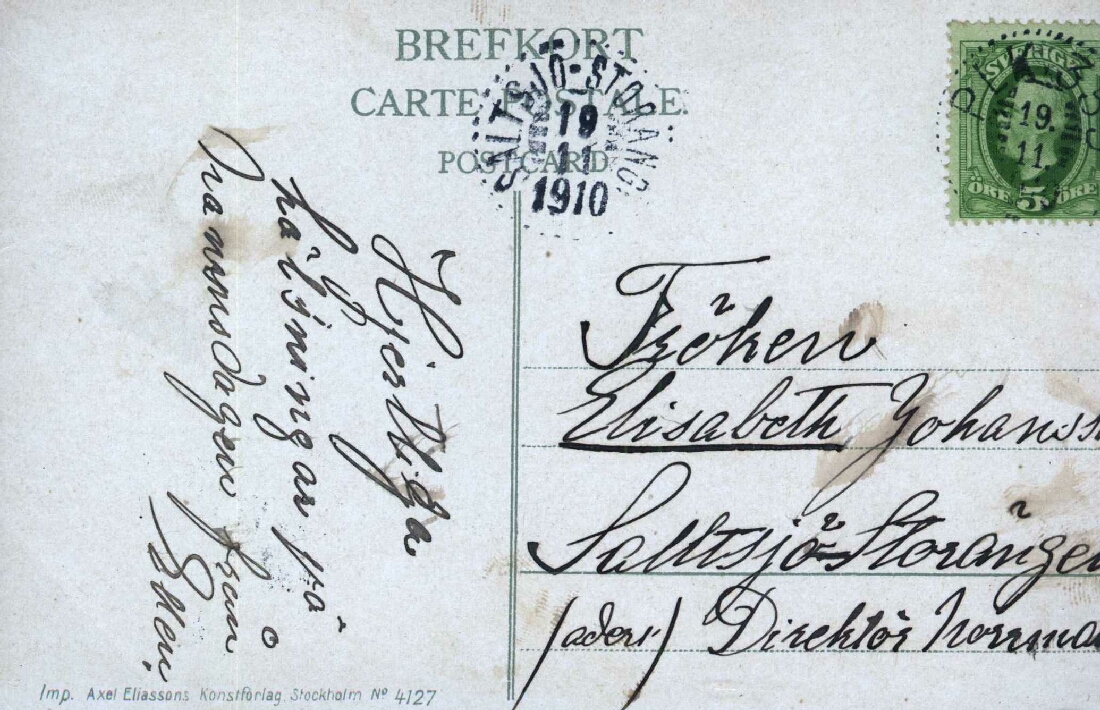 BREFKORT
CARTE POSTALE.
POSTCARD
SALTSJÖ-STORÄNGEN
19
11
1910
SVERIGE
19.
11.
ÖRE 5 ÖRE
Hjertliga
hälsningar på
namnsdagen från
Ellen.
Fröken
Elisabeth Johanss
Saltsjö-Storängen
(aders) Direktör Norrma
Imp. Axel Eliassons Konstförlag, Stockholm No 4127